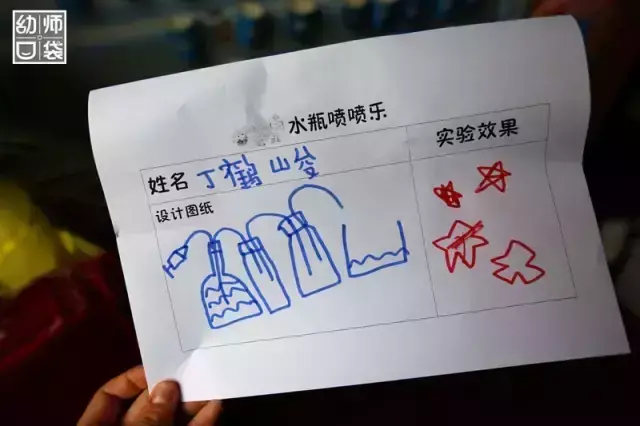 幼师口袋
水瓶喷喷乐
实验效果
姓名 丁鹤山
设计图纸